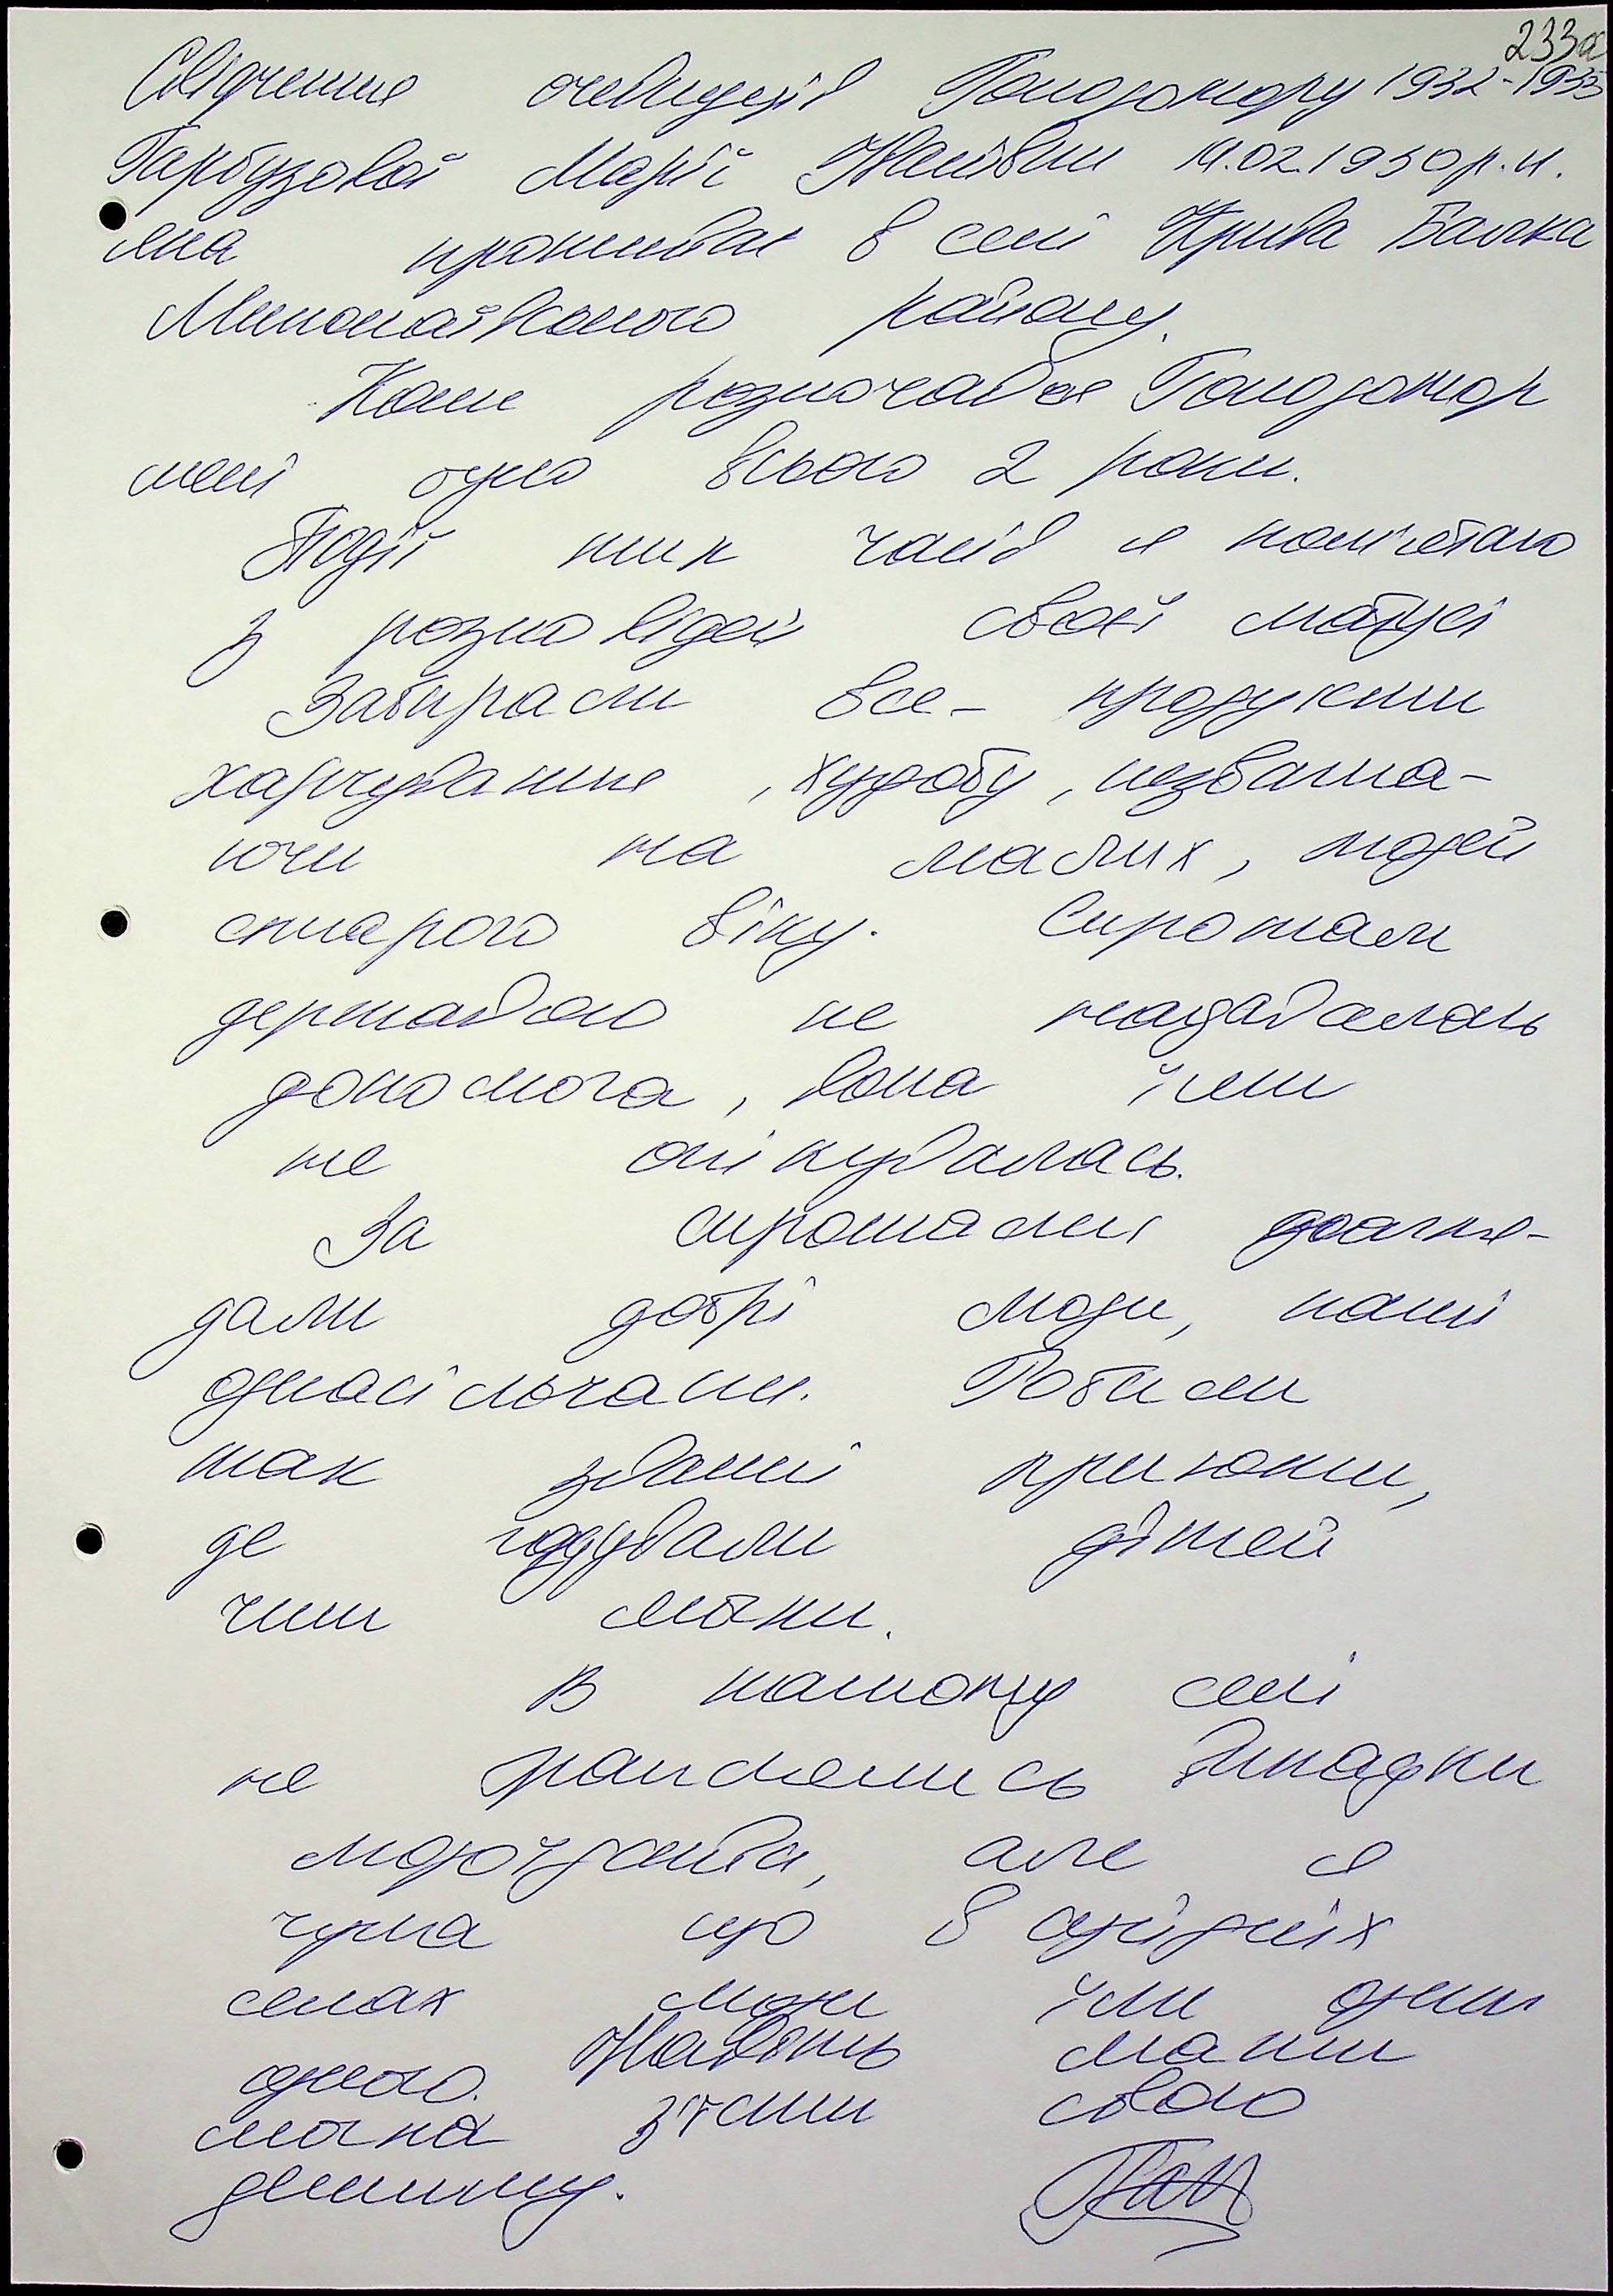 233а
Свідчення очевидців Голодомору 1932-1933
Гарбузової Марії Іванівни 19.02.1930 р.н.
яка проживає в селі Крива Балка
Миколаївського району.
Коли розпочався Голодомор
мені було всього 2 роки.
Події тих часів я пам'ятаю
з розповідей своєї матусі
Забирали все - продукти
харчування, худобу, незважа-
ючи на малих, людей
старого віку. Сиротам
державою не надавалась
допомога, вона їми
не опікувалась.
За сиротами догля-
дали добрі люди, наші
односільчани. Робили
так звані приюти,
де годували дітей
чим могли.
В нашому селі
не траплялись випадки
людоїдства, але я
чула що в сусідніх
селах люди їли один
одного. Навіть мати
могла з'їсти свою
дитину.